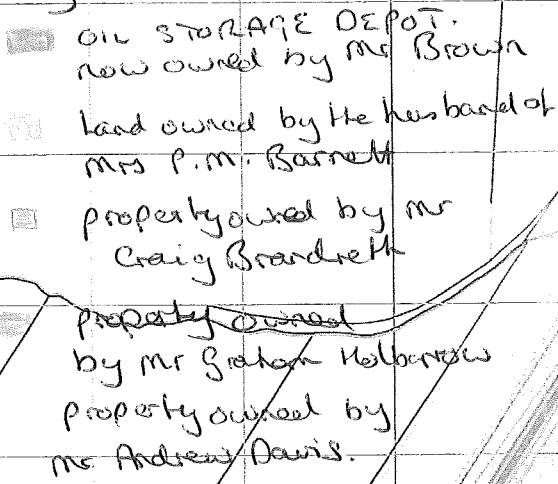 OIL STORAGE DEPOT.
now owned by Mr Brown
Land owned by the husband of
Mrs P.M. Barnett
property owned by Mr
Craig Brandreth
property owned
by Mr Graham Holbarrow
property owned by
Mr Andrew Davis.